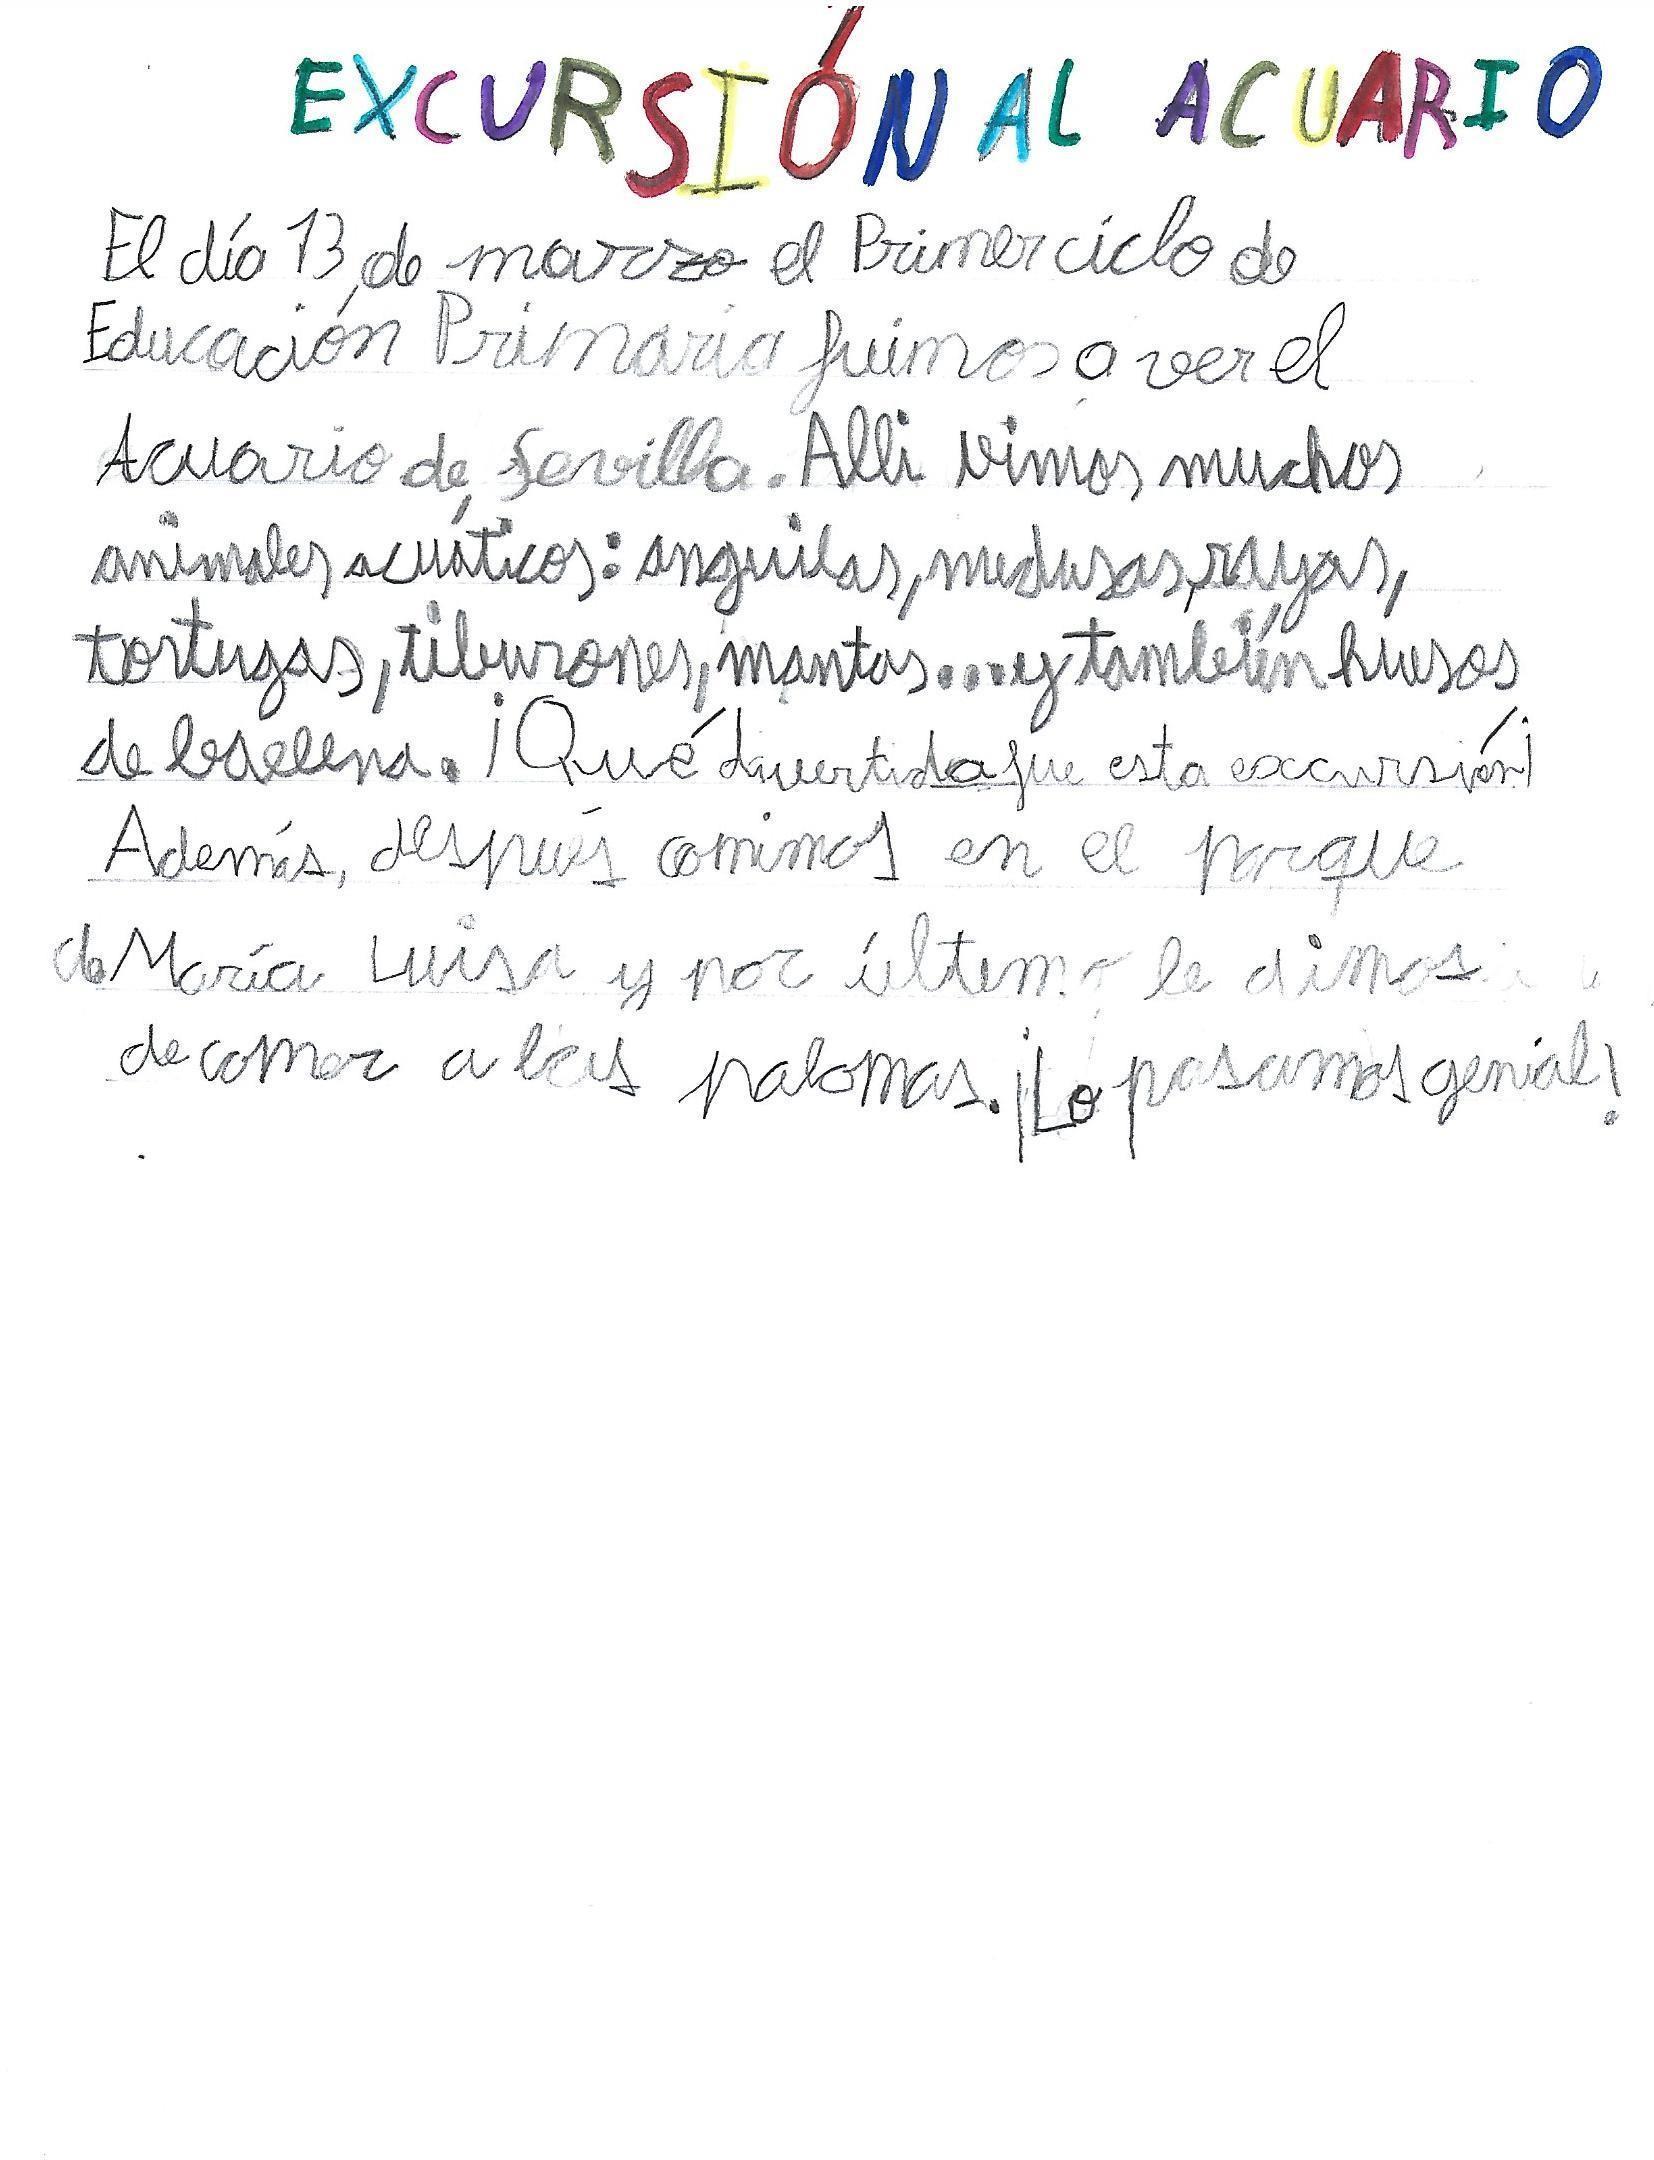 EXCURSIÓN AL ACUARIO
El día 13 de marzo el Primer ciclo de
Educación Primaria fuimos a ver el
Acuario de Sevilla. Alli vimos muchos
animales acuáticos: anguilas, medusas, rayas,
tortugas, tiburones, mantas... y también huesos
de baellena. ¡Qué divertida fue esta excursión!
Además, después comimos en el parque
de María Luisa y por último le dimos
de comer a las palomas. ¡Lo pasamos genial!